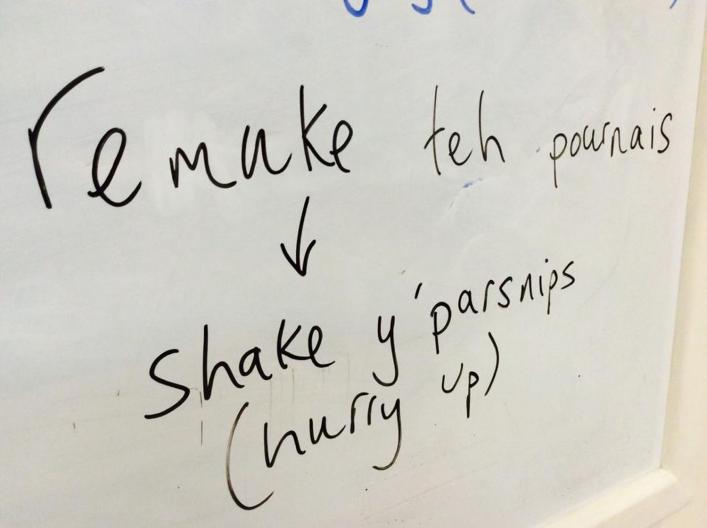 remake teh pournais
↓
shake y'parsnips
(hurry up)